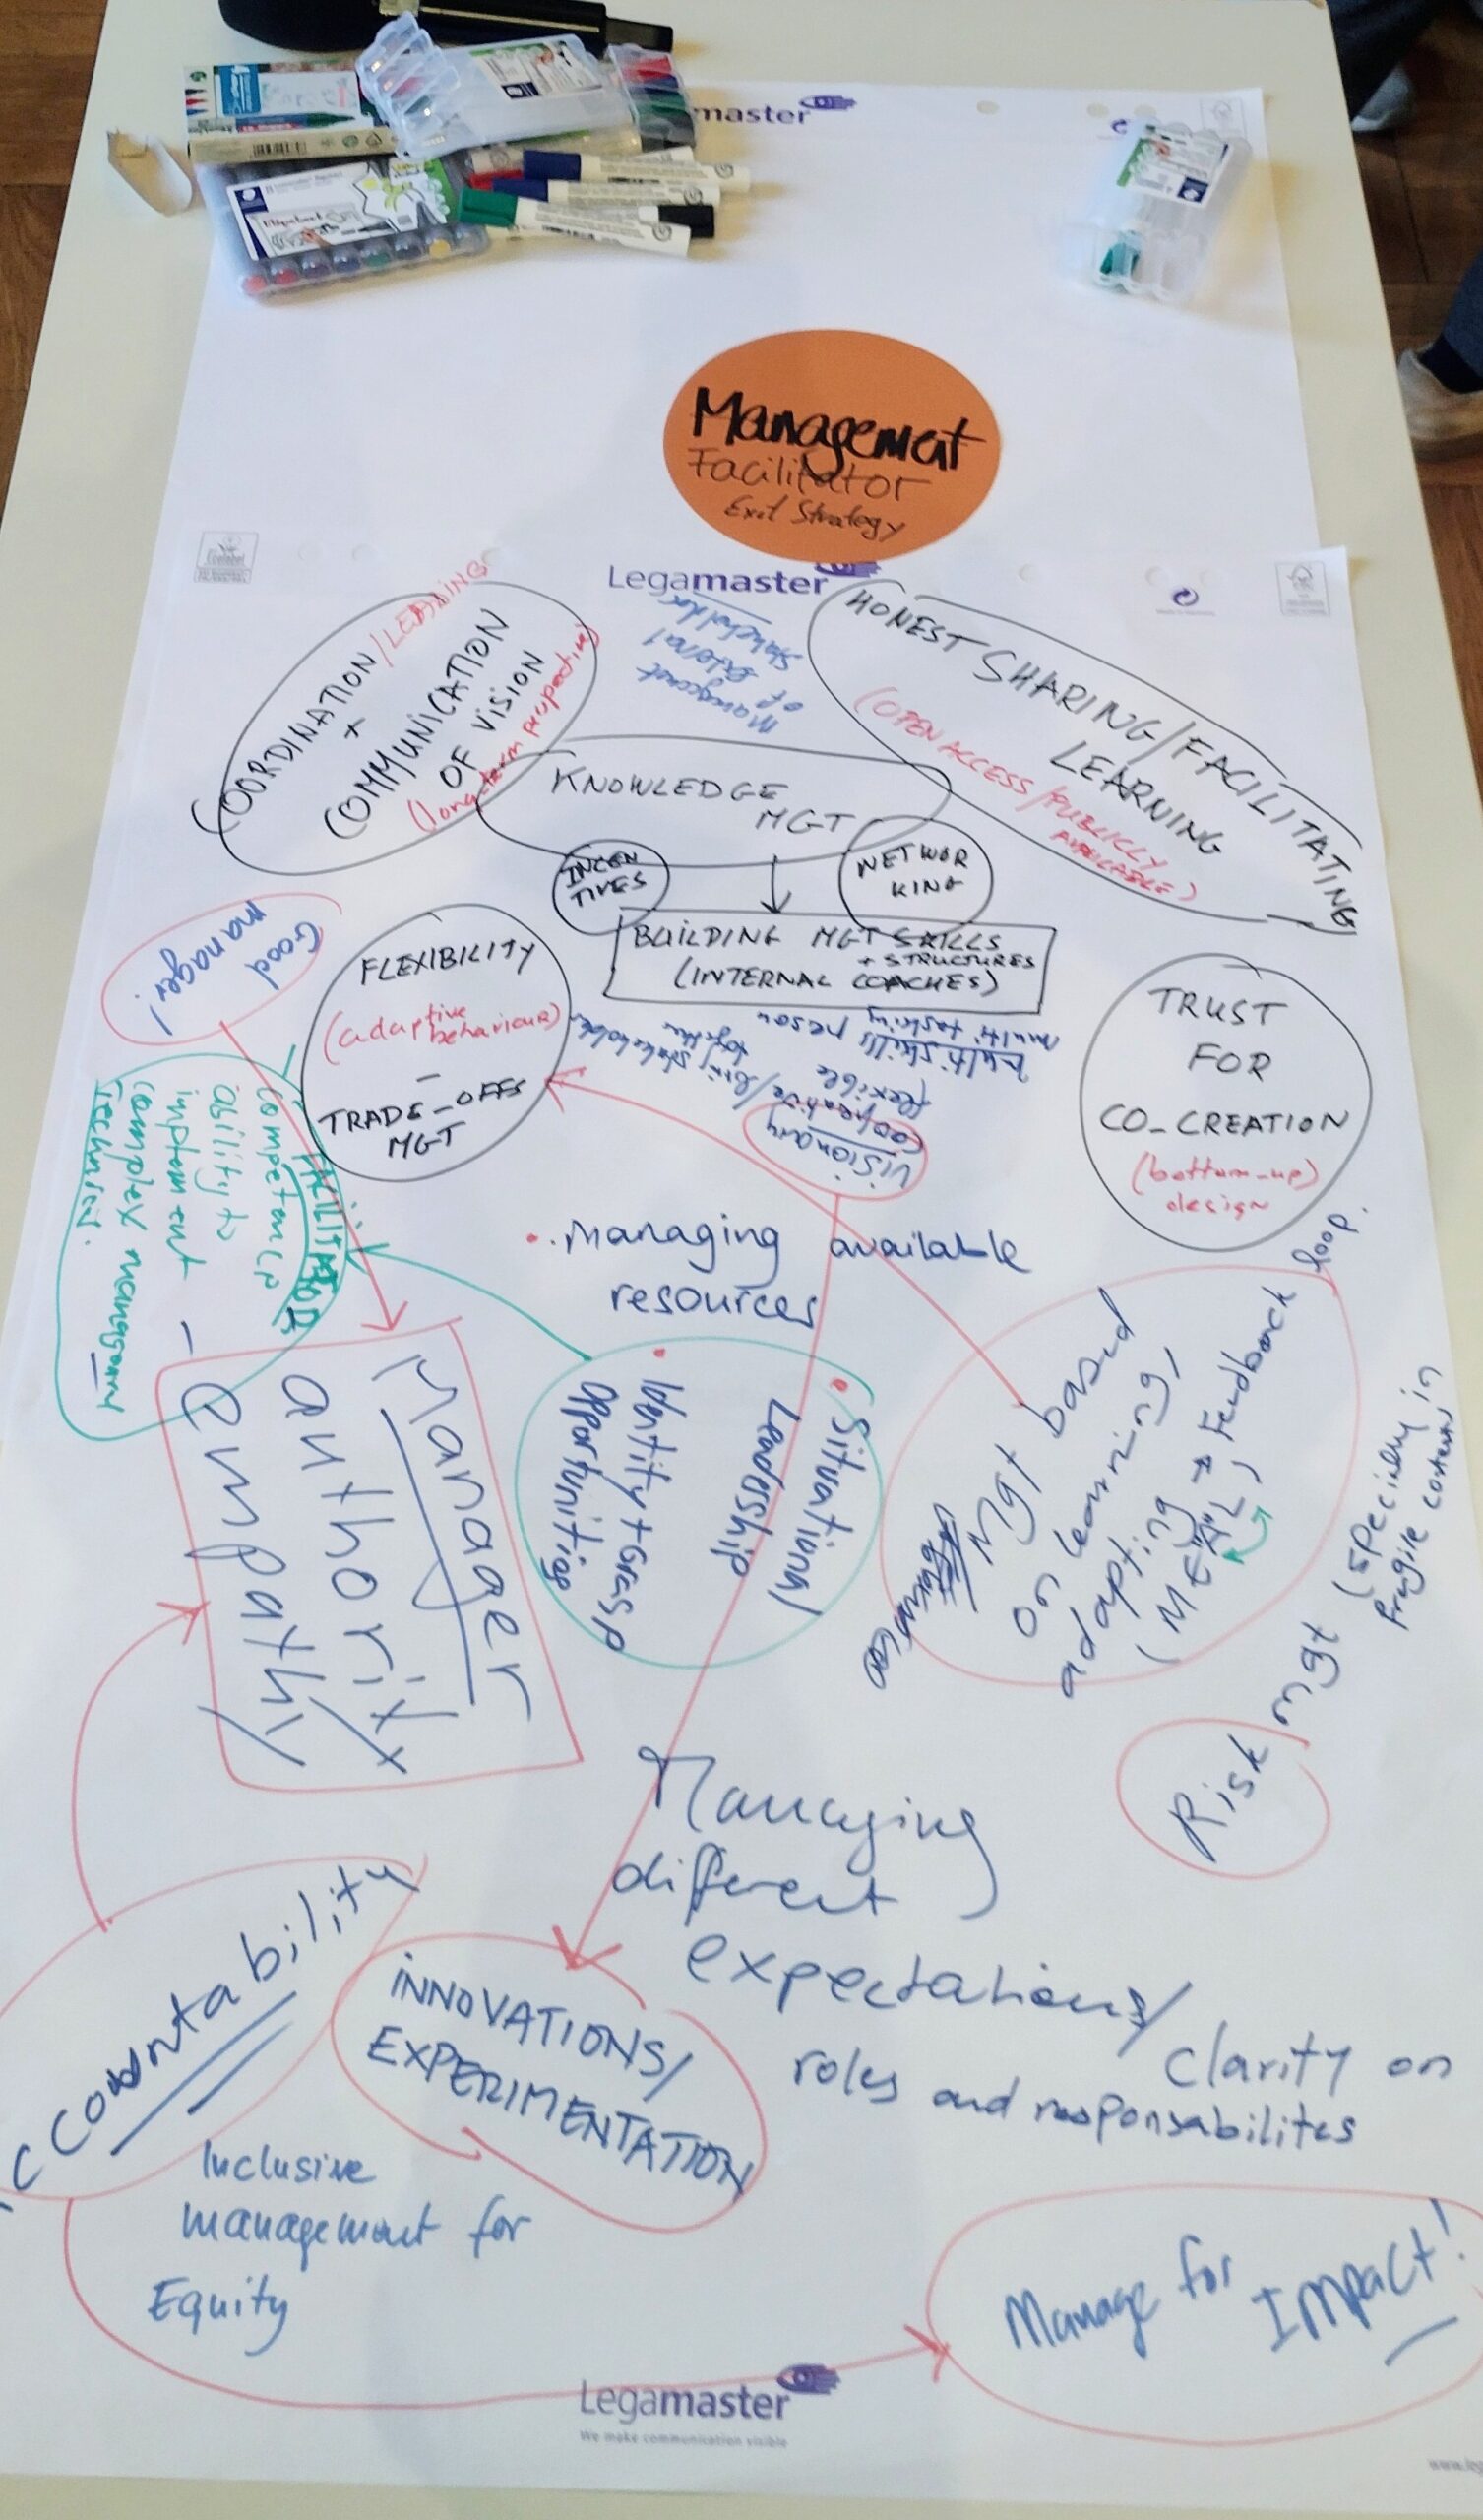 master
Management
Facilitator
Exit Strategy
Ecolabel
Legamaster
COORDINATION/LEADING
+
COMMUNICATION
OF VISION
(long-term perspective)
Management
of external
stakeholders
HONEST SHARING/FACILITATING
LEARNING
(OPEN ACCESS/PUBLICLY
AVAILABLE)
KNOWLEDGE
MGT
INCEN
TIVES
NETWOR
KING
BUILDING MGT SKILLS
+ STRUCTURES
(INTERNAL COACHES)
Good
manager!
FLEXIBILITY
(adaptive
behaviour)
–
TRADE_OFFS
MGT
multi tasking
multi skills person
flexible
cooperative / bring stakeholders
together
visionary
TRUST
FOR
CO_CREATION
(bottom-up)
design
FACILITATOR
Competence
ability to
implement
complex managem
technical.
• Managing available
resources
Manager
authority
– empathy
• Situational
Leadership
• Identity + Grasp
opportunities
Mgt based
on learning,
adapting
(MEAL) → Feedback loop.
Risk mgt (specially in
fragile context)
Managing
different
expectations/
Clarity on
roles and responsabilites
ccountability
INNOVATIONS/
EXPERIMENTATION
Inclusive
management for
Equity
Manage for
Impact!
Legamaster
We make communication visible
www.leg